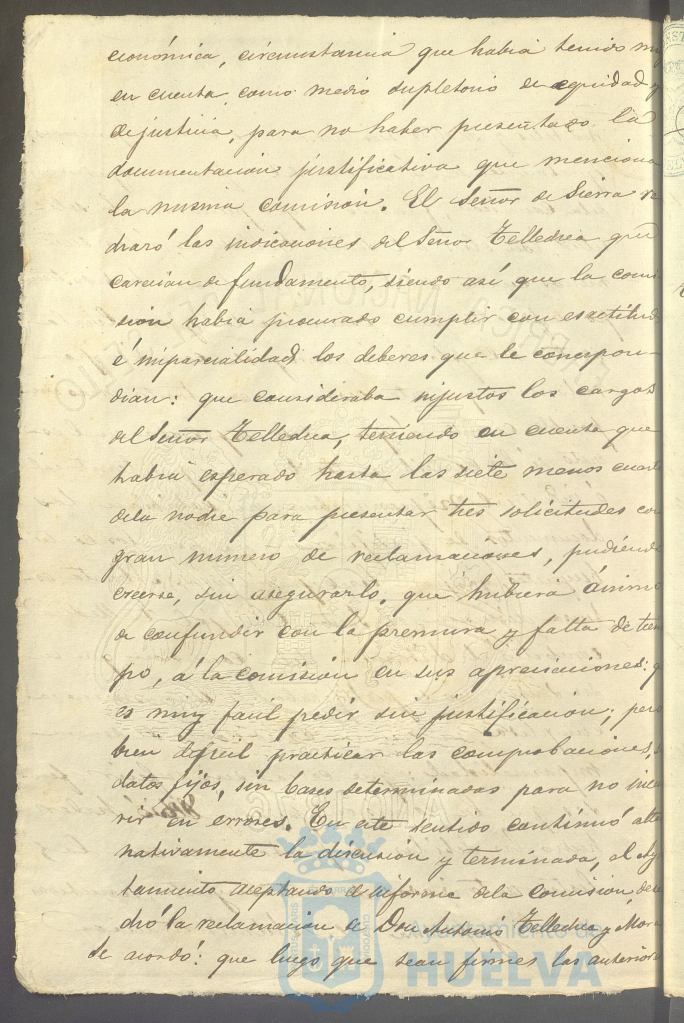 económica, circunstancia que habia tenido
en cuenta, como medio supletorio de equidad y
de justicia, para no haber presentado la
documentacion justificativa que menciona
la misma comision. El Señor de Sierra re
chazó las indicaciones del Señor Telledrea que
carecian de fundamento, siendo asi que la comi
sion habia procurado cumplir con esactitud
é imparcialidad los deberes que le correspon-
dian: que consideraba injustos los cargos
del Señor Telledrea, teniendo en cuenta que
habia esperado hasta las siete menos cuarto
de la noche para presentar tres solicitudes con
gran numero de reclamaciones, pudiendo
creerse, sin asegurarlo, que hubiera ánimo
de confundir con la premura y falta de tiem
po, á la comision en sus apreciaciones: q
es muy facil pedir sin justificacion; pero
bien dificil practicar las comprobaciones,
datos fijos, sin bases determinadas para no incu
rrir en errores. En este sentido continuó alter
nativamente la discusion y terminada, el Ayun
tamiento aceptando el informe de la Comision, dese
chó la reclamacion de Don Antonio Telledrea y Mora
Se acordó: que luego que sean firmes las anteriores
Ayuntamiento de
HUELVA